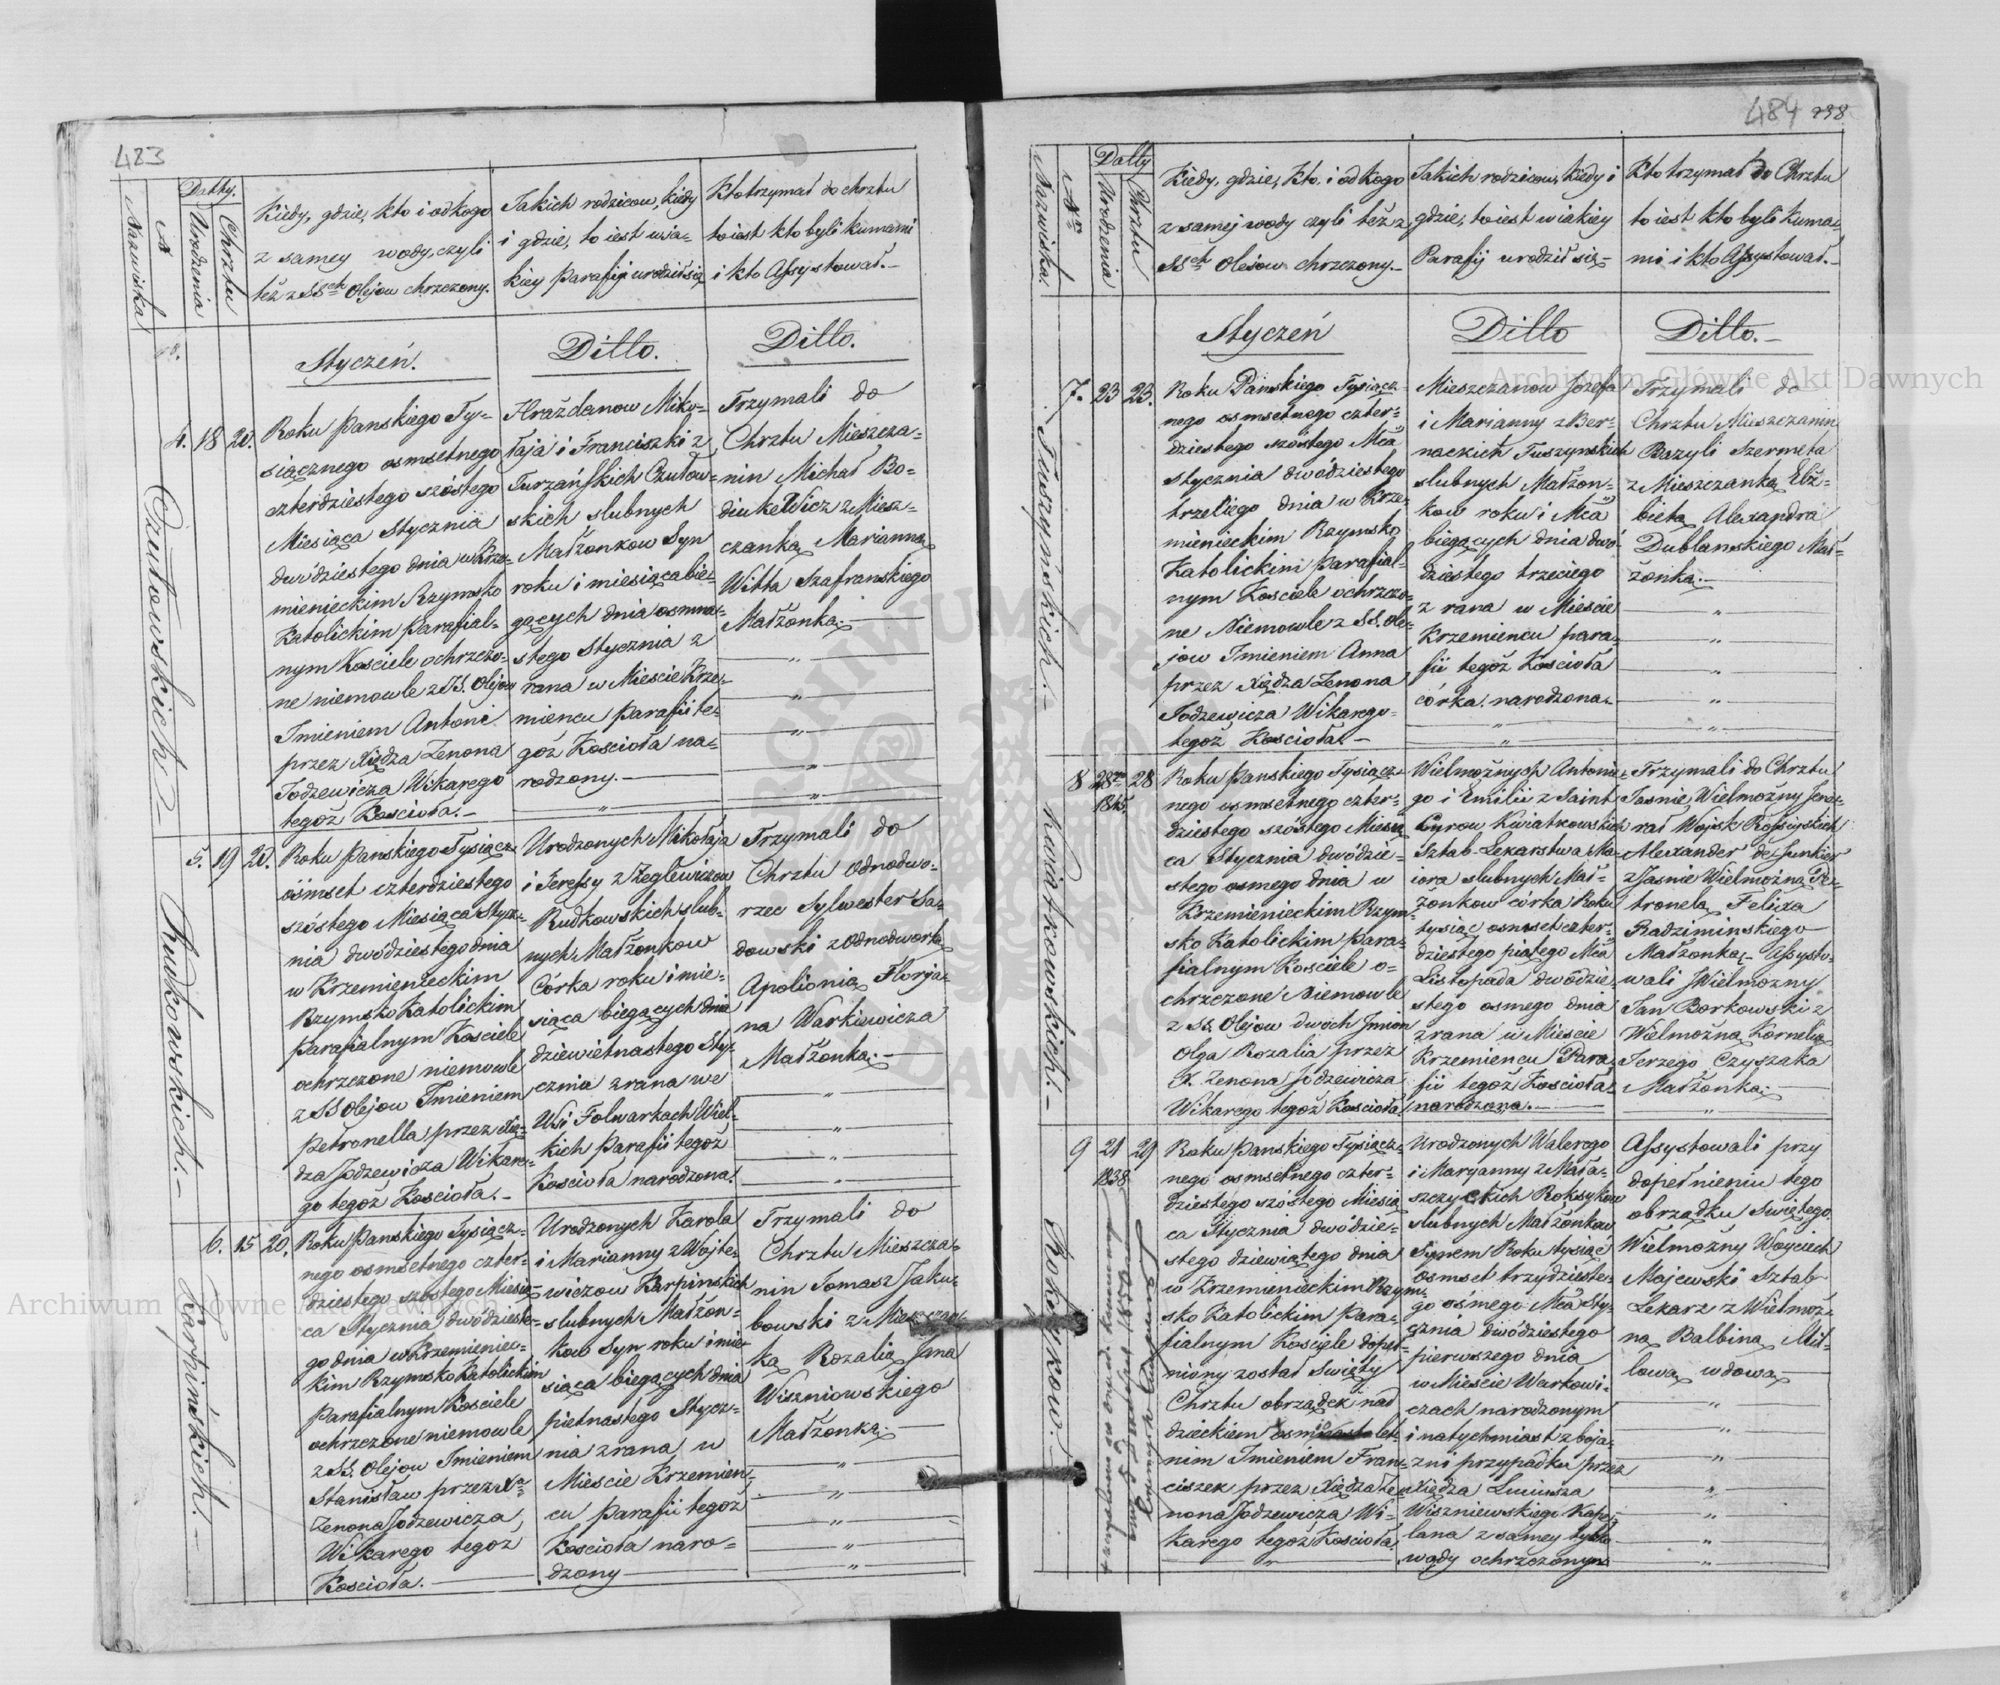 483
Datty.
Nazwiska
N
Urodzenia
Chrztu
Kiedy, gdzie, kto i od kogo
z samey wody, czyli
też z SSch Olejow chrzczony.
Jakich rodzicow, kiedy
i gdzie, to iest w ja-
kiey Parafij urodził się
Kto trzymał do chrztu
to iest kto byli kumami
i kto Assystował.-
Styczeń.
Ditto.
Ditto.
4. 18 20.
Czutowskich
Roku Panskiego Ty-
siącznego osmsetnego
czterdziestego szóstego
Miesiąca Stycznia
dwódziestego dnia w Krze-
mienieckim Rzymsko
Katolickim Parafial-
nym Kosciele ochrzczo-
ne niemowle z SS. Olejow
Imieniem Antoni
przez Xiędza Zenona
Jodzewicza Wikarego
tegoż Kościoła.-
Hrażdanow Miko-
łaja i Franciszki z
Turzańskich Czutow-
skich slubnych
Małżonkow Syn
roku i miesiąca bie-
gących dnia osmna-
stego Stycznia z
rana w Miescie Krze-
miencu Parafii te-
goż Kościoła na-
rodzony.-
Trzymali do
Chrztu Mieszcza-
nin Michał Bo-
diukewicz z Miesz-
czanką Marianną
Witta Szafranskiego
Małżonką.-
5. 19 20.
Rudkowskich.-
Roku Panskiego Tysiącz
óśmset czterdziestego
szóstego Miesiąca Stycz-
nia dwódziestego dnia
w Krzemienieckim
Rzymsko Katolickim
Parafialnym Kosciele
ochrzczone niemowle
z SS Olejow Imieniem
Petronella przez Xię-
dza Jodzewicza Wikare-
go tegoż Kościoła.-
Urodzonych Mikołaja
i Teressy z Zeglewiczow
Rudkowskich slub-
nych Małżonkow
Córka roku i mie-
siąca biegących dnia
dziewietnastego Sty-
cznia z rana we
Wsi Folwarkach Wiel-
kich Parafii tegoż
Kościoła narodzona.
Trzymali do
Chrztu Odnodwo-
rzec Sylwester Sa-
dowski z Odnodworką
Apolionią Florja-
na Warkiewicza
Małżonką.-
6. 15 20.
Karpinskich.-
Roku Panskiego Tysiącz-
nego osmsetnego czter-
dziestego szóstego Miesią-
ca Stycznia dwódzieste-
go dnia w Krzemieniec-
kim Rzymsko Katolickim
Parafialnym Kosciele
ochrzczone niemowle
z SS. Olejow Imieniem
Stanisław przez Xa
Zenona Jodzewicza,
Wikarego tegoż
Kościoła.-
Urodzonych Karola
i Marianny z Wojte-
wiczow Karpinskich
slubnych Małżon-
kow Syn roku i mie-
siąca biegących dnia
pietnastego Stycz-
nia z rana w
Miescie Krzemien-
cu Parafii tegoż
Kościoła naro-
dzony
Trzymali do
Chrztu Mieszcza-
nin Tomasz Jaku-
bowski z Mieszczan-
ką Rozalią Jana
Wiszniowskiego
Małżonką
484
238
Datty
Nazwiska.
Nro
Urodzenia
Chrztu
Kiedy, gdzie, Kto i od kogo
z samej wody czyli też z
SSch Olejow chrzczony.-
Jakich rodzicow, kiedy i
gdzie, to iest w iakiey
Parafij urodził się-
Kto trzymał do Chrztu
to iest kto byli Kuma-
mi i kto Assystował.-
Styczeń
Ditto
Ditto.-
7. 23 23.
Tuszynskich.-
Roku Panskiego Tysiącz-
nego osmsetnego czter-
dziestego szóstego Mca
Stycznia dwódziestego
trzeciego dnia w Krze-
mienieckim Rzymsko
Katolickim Parafial-
nym Kosciele ochrzczo-
ne Niemowle z SS. Ole-
jow Imieniem Anna
przez Xiędza Zenona
Jodzewicza Wikarego-
tegoż Kościoła.-
Mieszczanow Jozefa
i Marianny z Ber-
nackich Tuszynskich
slubnych Małżon-
kow roku i Mca
biegących dnia dwó-
dziestego trzeciego
z rana w Miescie
Krzemiencu para-
fii tegoż Kościoła
córka narodzona.
Trzymali do
Chrztu Mieszczanin
Bazyli Szermeta
z Mieszczanką Elż-
bietą Alexandra
Dublanskiego Mał-
żonką.-
8 28 28
1845
Kwiatkowskich.-
Roku Panskiego Tysiącz-
nego osmsetnego czter-
dziestego szóstego Miesią
ca Stycznia dwódzie-
stego osmego dnia w
Krzemienieckim Rzym-
sko Katolickim Para-
fialnym Kosciele o-
chrzczone Niemowle
z SS. Olejow dwoch Imion
Olga Rozalia przez
X. Zenona Jodzewicza
Wikarego tegoż Kościoła
Wielmożnych Antonie-
go i Emilii z Saint
Cyrow Kwiatkowskich
Sztab-Lekarstwa Ma-
iora slubnych Mał-
żonkow córka Roku
tysiąc osmset czter-
dziestego piątego Mca
Listopada dwódzie-
stego osmego dnia
z rana w Miescie
Krzemiencu Para-
fii tegoż Kościoła
narodzona.-
Trzymali do Chrztu
Jasnie Wielmożny Jene-
rał Wojsk Rossijskich
Alexander de Junkier
z Jasnie Wielmożną Pe-
tronelą Felixa
Radziminskiego
Małżonką- Assysto-
wali JWielmozny
Jan Borkowski z
Wielmożną Kornelią
Jerzego Czyszaka
Małżonką.-
9 21 29
1838
Roksykow.-
Roku Panskiego Tysiącz-
nego osmsetnego czter-
dziestego szóstego Miesią
ca Stycznia dwódzie-
stego dziewiątego dnia
w Krzemienieckim Rzym-
sko Katolickim Para-
fialnym Kosciele dopeł-
niony został Swięty
Chrztu obrządek nad
dzieckiem osmio let-
nim Imieniem Fran-
ciszek przez Xiędza Ze-
nona Jodzewicza Wi-
karego tegoż Kościoła.
Urodzonych Walerego
i Maryanny z Mała-
szczyckich Roksykow
slubnych Małżonkow
Synem Roku tysiąć
osmset trzydzieste-
go ośmego Mca Sty-
cznia dwódziestego
pierwszego dnia
w Miescie Warkowi-
czach narodzonym
i natychmiast z boja-
zni przypadku przez
Xiędza Luciusza
Wiszniewskiego Kape-
lana z samey tylko
wody ochrzczonym
Assystowali przy
dopełnieniu tego
obrządku Swiętego
Wielmożny Woyciech
Majewski Sztab
Lekarz z Wielmoż-
ną Balbiną Mil-
lową wdową
Archiwum Główne Akt Dawnych
Archiwum Główne Akt Dawnych